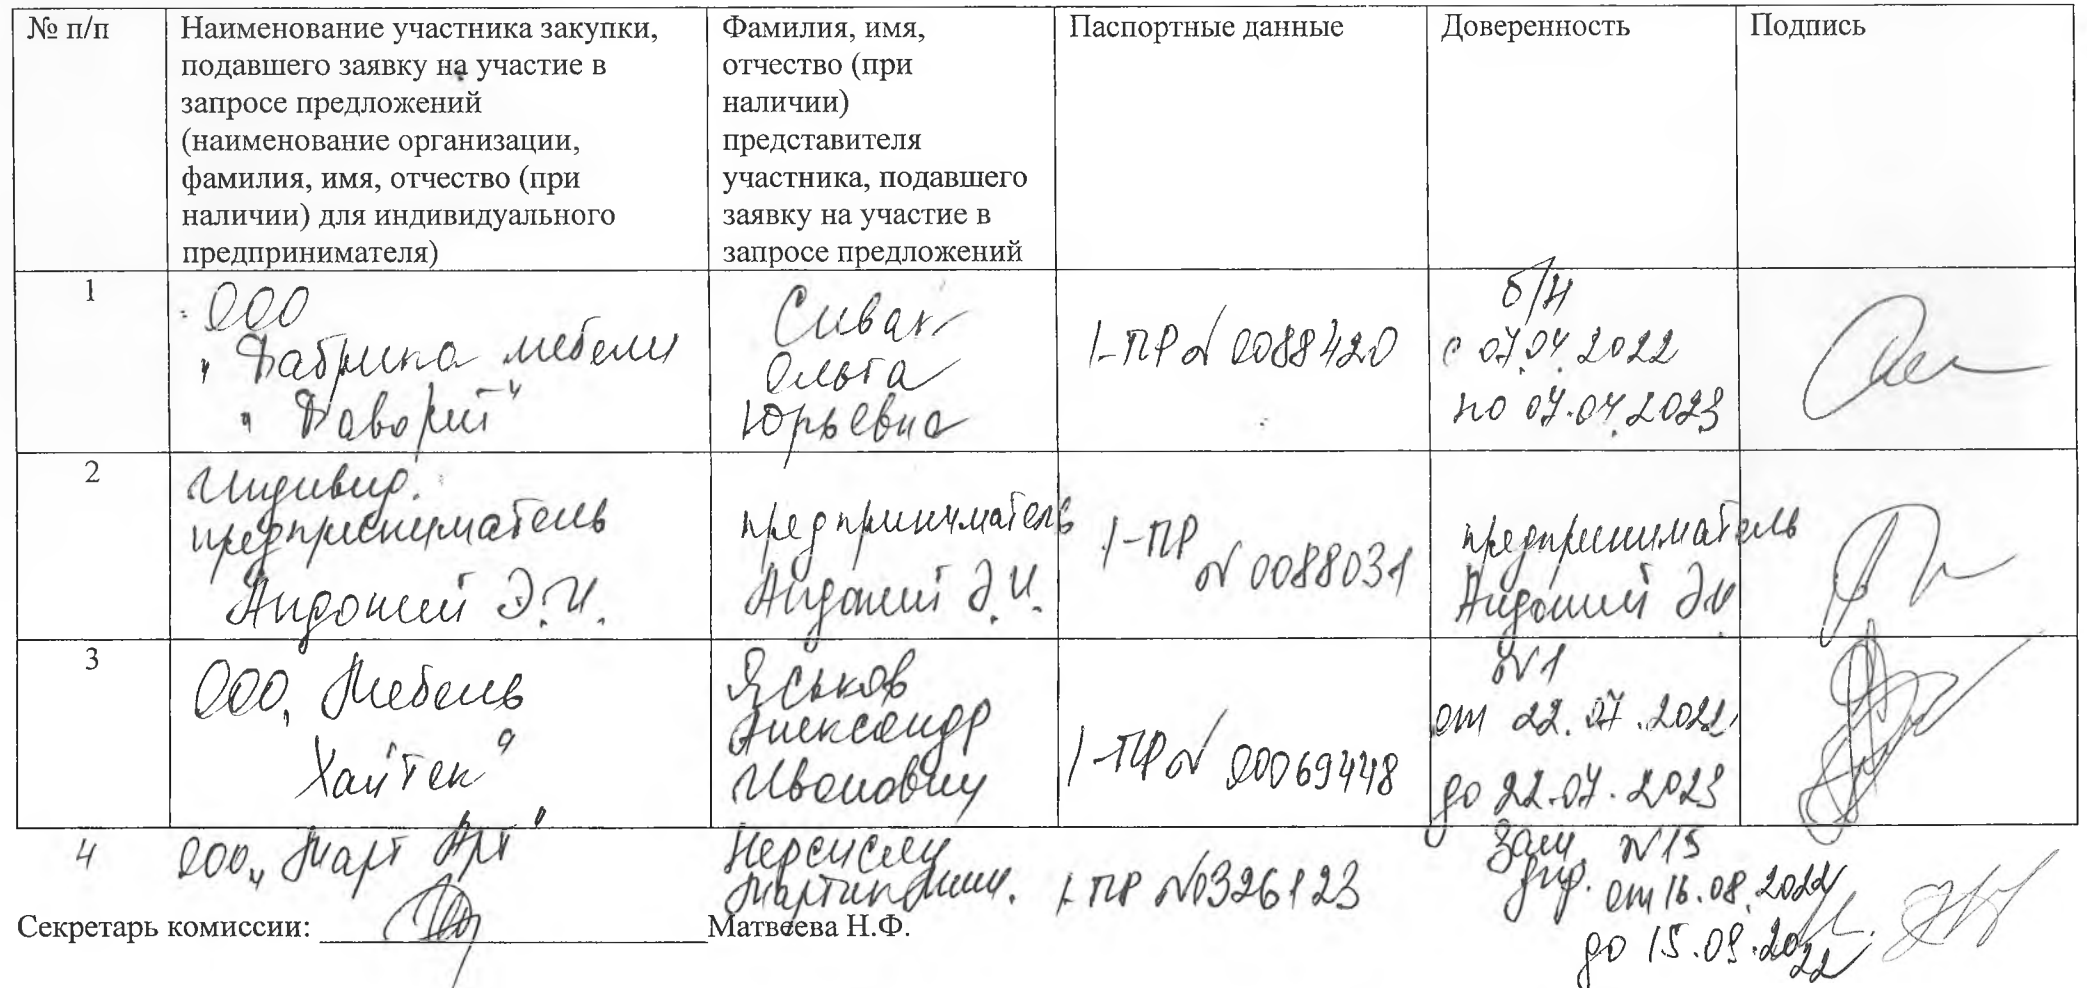 № п/п
Наименование участника закупки,
подавшего заявку на участие в
запросе предложений
(наименование организации,
фамилия, имя, отчество (при
наличии) для индивидуального
предпринимателя)
Фамилия, имя,
отчество (при
наличии)
представителя
участника, подавшего
заявку на участие в
запросе предложений
Паспортные данные
Доверенность
Подпись
1
ООО
"Фабрика мебели
"Фаворит"
Сивак
Ольга
Юрьевна
I-ПР № 0088420
б/н
с 07.04.2022
по 07.04.2023
2
Индивид.
предприниматель
Андоний Э.И.
предприниматель
Андоний Э.И.
I-ПР
№ 0088031
предприниматель
Андоний Э.И.
3
ООО „Мебель
Хайтек"
Яськов
Александр
Иванович
I-ПР № 00069448
№1
от 22.07.2022
до 22.07.2023
4
ООО „Март Арт"
Нерсисян
I-ПР №0326123
Зам. №15
дир. от 16.08.2022
до 15.09.2022
Секретарь комиссии:
Матвеева Н.Ф.